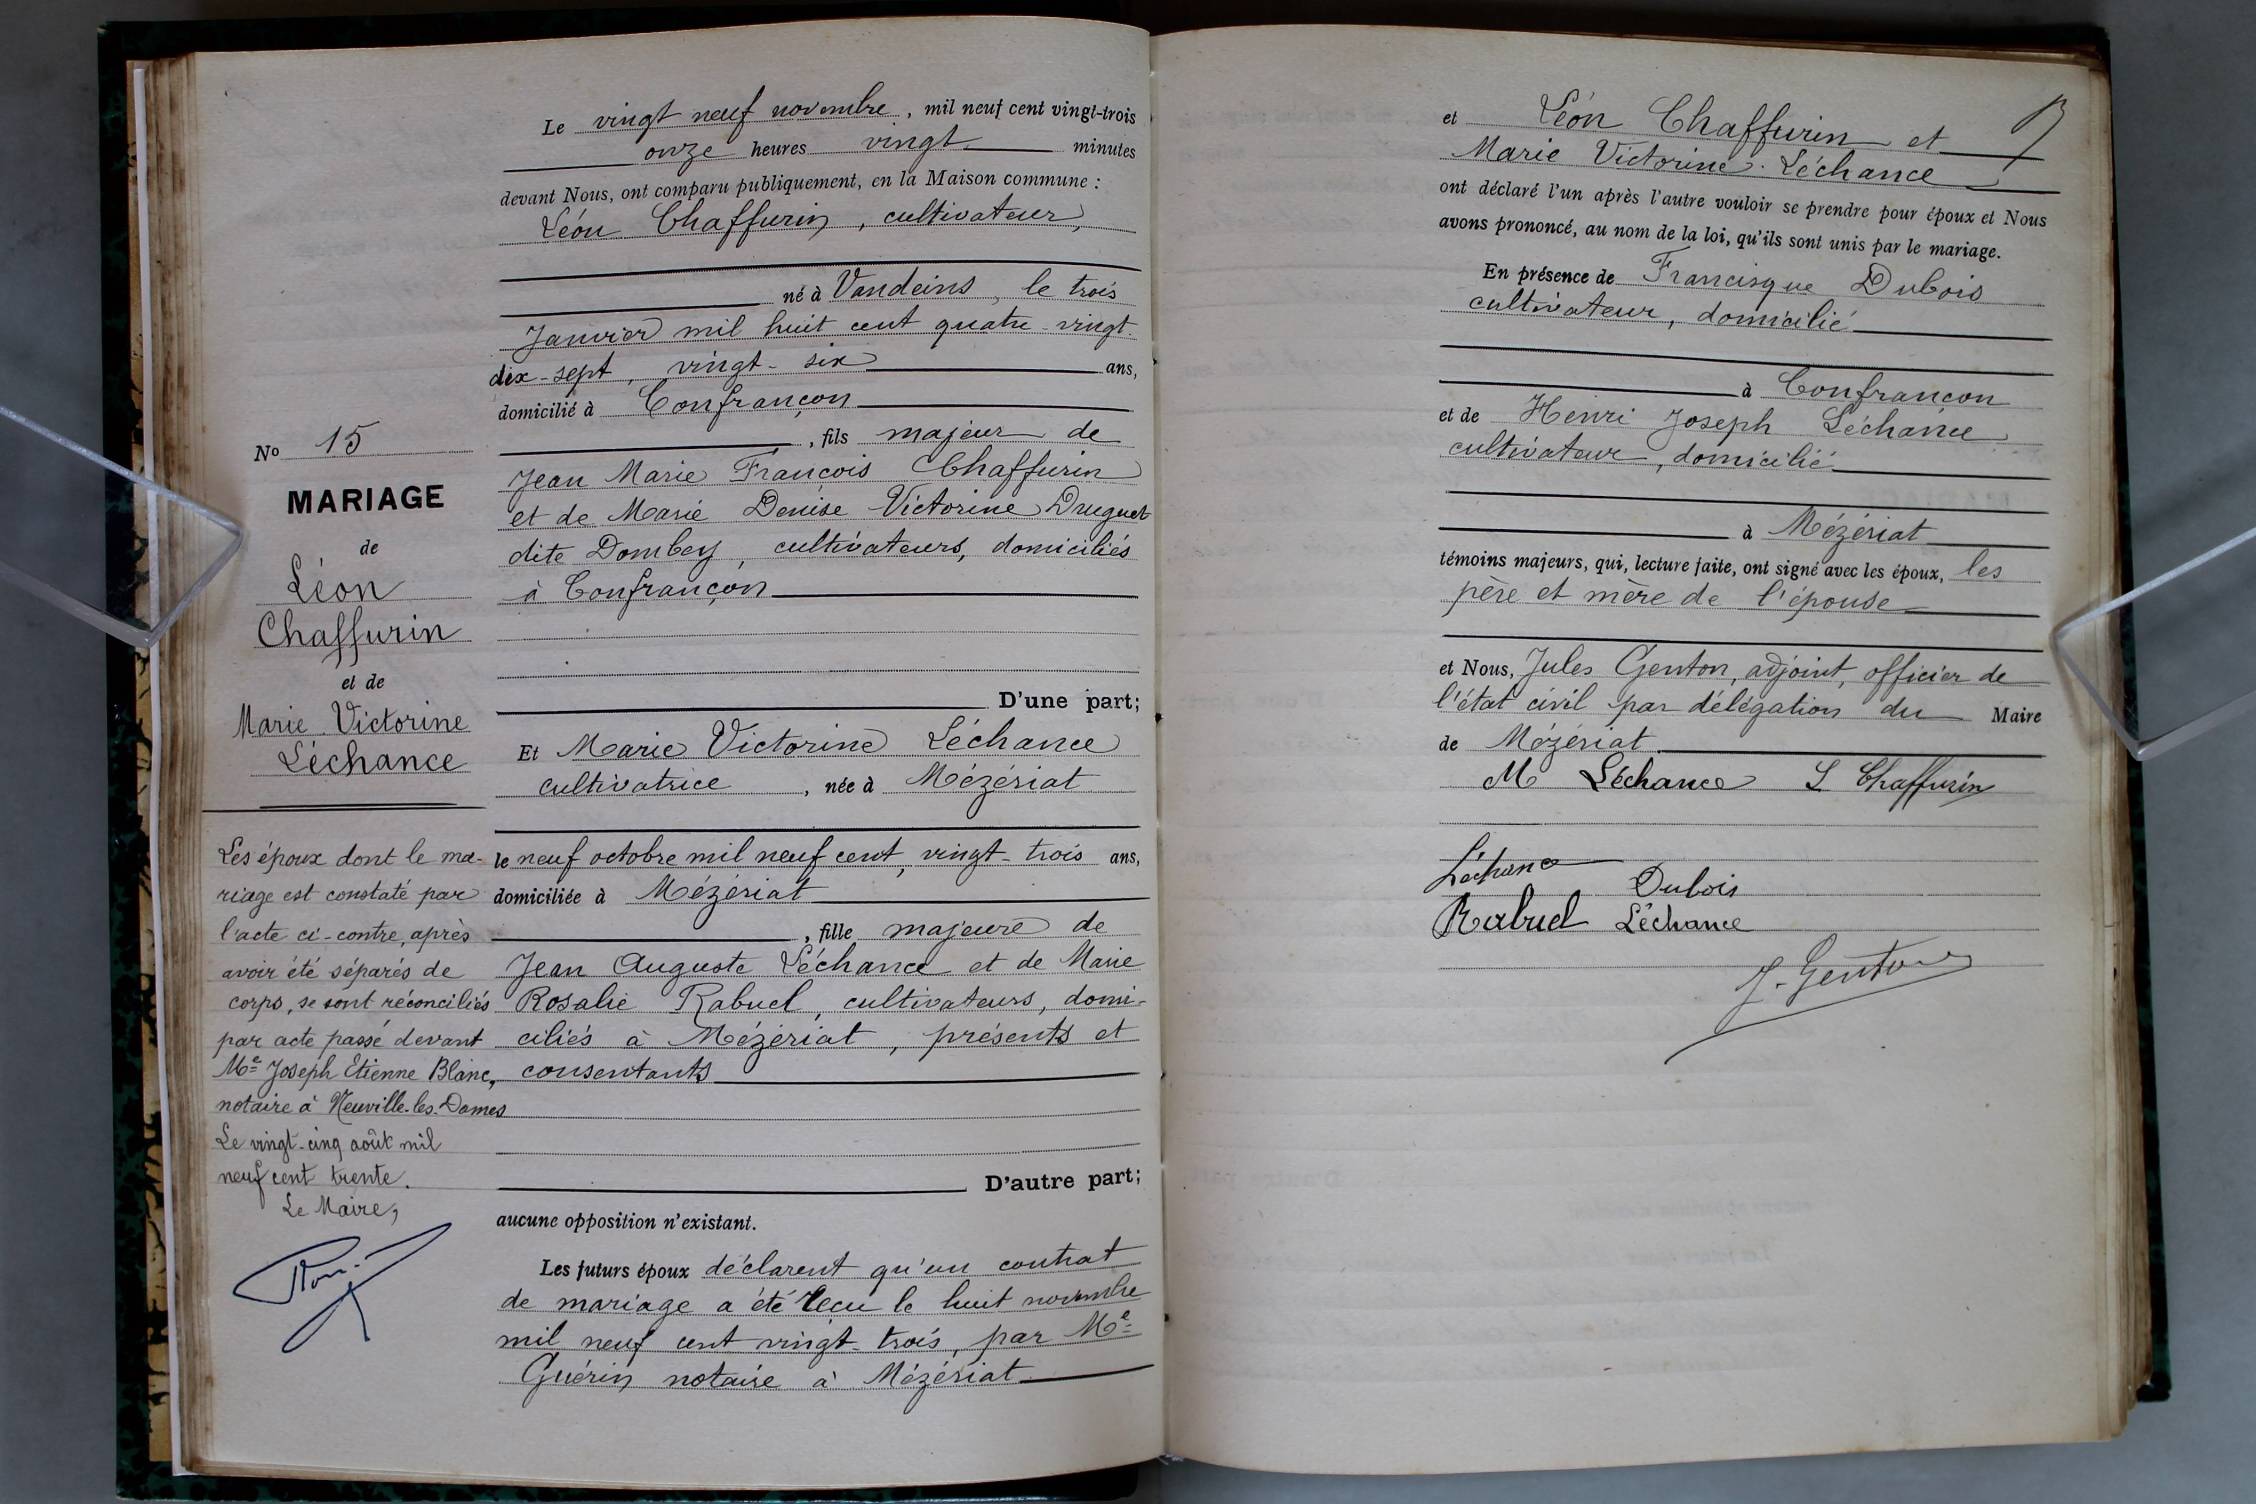 No 15
MARIAGE
de
Léon
Chaffurin
et de
Marie Victorine
Léchance
Les époux dont le ma-
riage est constaté par
l'acte ci-contre, après
avoir été séparés de
corps, se sont réconciliés
par acte passé devant
Me Joseph Etienne Blanc,
notaire à Neuville-les-Dames
Le vingt-cinq août mil
neuf cent trente.
Le Maire,
Le vingt neuf novembre, mil neuf cent vingt-trois
onze heures vingt minutes
devant Nous, ont comparu publiquement, en la Maison commune :
Léon Chaffurin, cultivateur,
né à Vandeins, le trois
Janvier mil huit cent quatre-vingt-
dix-sept, vingt-six ans,
domicilié à Confrançon
, fils majeur de
Jean Marie François Chaffurin
et de Marie Denise Victorine Druguet
dite Dombey, cultivateurs, domiciliés
à Confrançon
D'une part;
Et Marie Victorine Léchance
cultivatrice, née à Mézériat
le neuf octobre mil neuf cent, vingt-trois ans,
domiciliée à Mézériat
, fille majeure de
Jean Auguste Léchance et de Marie
Rosalie Rabuel, cultivateurs, domi-
ciliés à Mézériat, présents et
consentants
D'autre part;
aucune opposition n'existant.
Les futurs époux déclarent qu'un contrat
de mariage a été reçu le huit novembre
mil neuf cent vingt-trois, par Me
Guérin notaire à Mézériat
et Léon Chaffurin et
Marie Victorine Léchance
ont déclaré l'un après l'autre vouloir se prendre pour époux et Nous
avons prononcé, au nom de la loi, qu'ils sont unis par le mariage.
En présence de Francisque Dubois
cultivateur, domicilié
à Confrançon
et de Henri Joseph Léchance
cultivateur, domicilié
à Mézériat
témoins majeurs, qui, lecture faite, ont signé avec les époux, les
père et mère de l'épouse
et Nous, Jules Genton, adjoint, officier de
l'état civil par délégation du Maire
de Mézériat.
M Léchance L Chaffurin
Léchance
Dubois
Rabuel Léchance
J. Genton